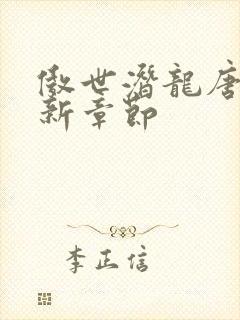 傲世潛龍唐
新章節
李正信